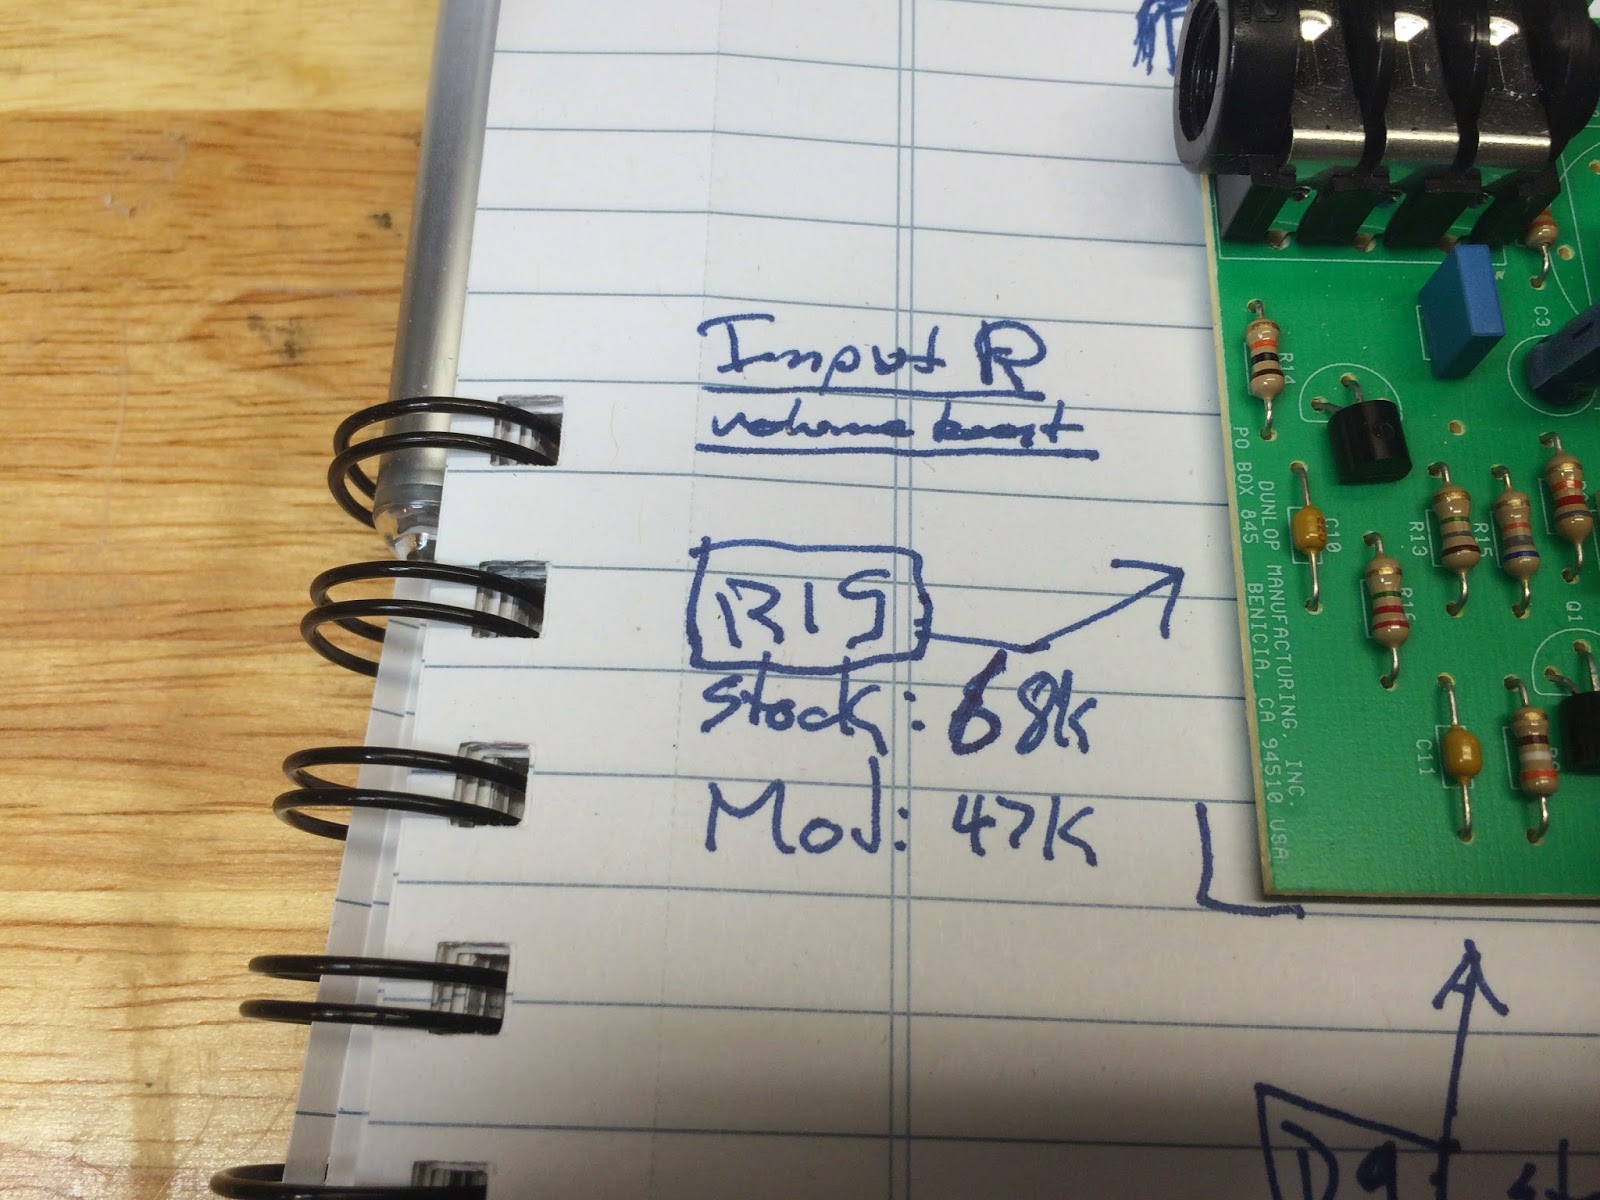 Input R
volume boost
R15
stock: 68k
Mod: 47K
R14
C3
PO BOX 845 BENICIA, CA 94510 USA
DUNLOP MANUFACTURING, INC.
C10
R13
R15
R16
Q1
C11